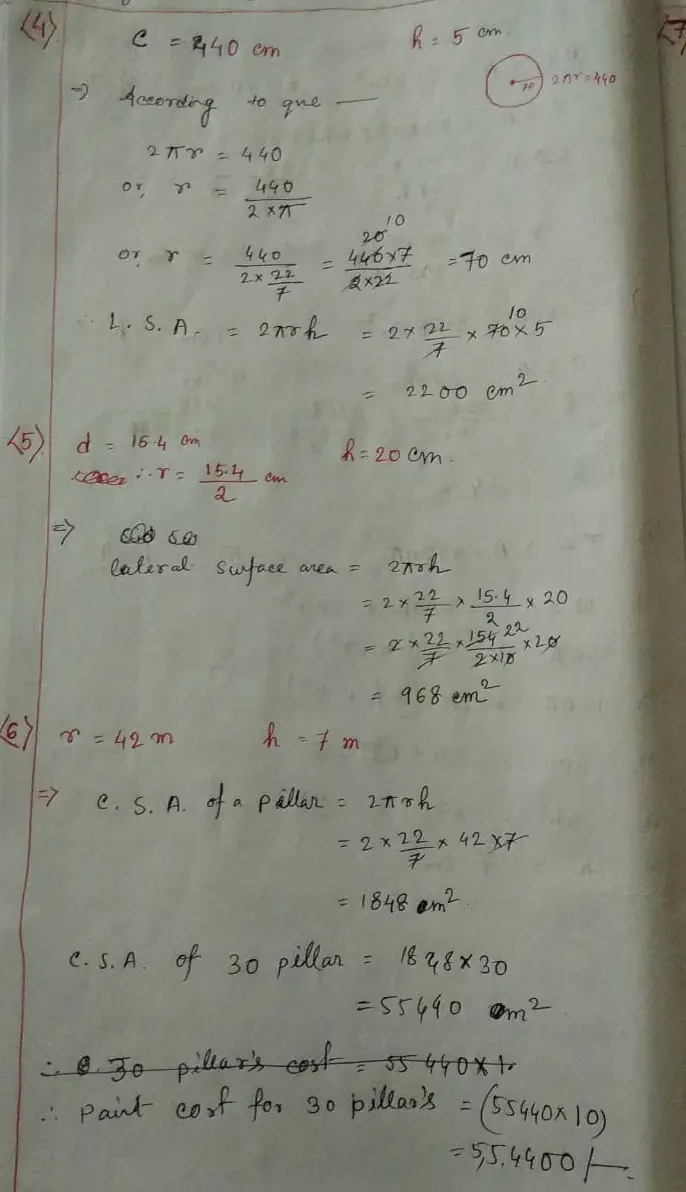 (4) C = 440 cm h = 5 cm
70 2πr = 440
⇒ According to que —
2πr = 440
or, r = 440/(2×π)
or, r = 440/(2×22/7) = 20 10 440×7/(2×22) = 70 cm
∴ L. S. A. = 2πrh = 2×22/7×70×5 10
= 2200 cm²
(5) d = 15.4 cm h = 20 cm.
∴ r = 15.4/2 cm
⇒
lateral surface area = 2πrh
= 2×22/7×15.4/2×20
= 2×22/7×154/(2×10)×20 22
= 968 cm²
(6) r = 42 m h = 7 m
⇒ C. S. A. of a pillar = 2πrh
= 2×22/7×42×7
= 1848 m²
C. S. A. of 30 pillar = 1848×30
= 55440 m²
∴ 30 pillar's cost = 55440×1.
∴ paint cost for 30 pillar's = (55440×10)
= 5,5,4400/—
(7